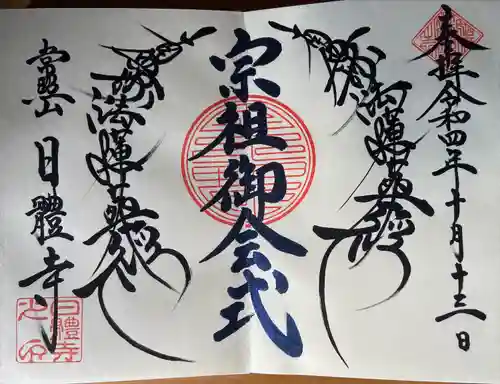 奉拝 令和四年十月十三日
南無妙法蓮華経
宗祖御会式
南無妙法蓮華経
日體寺
日體寺之印